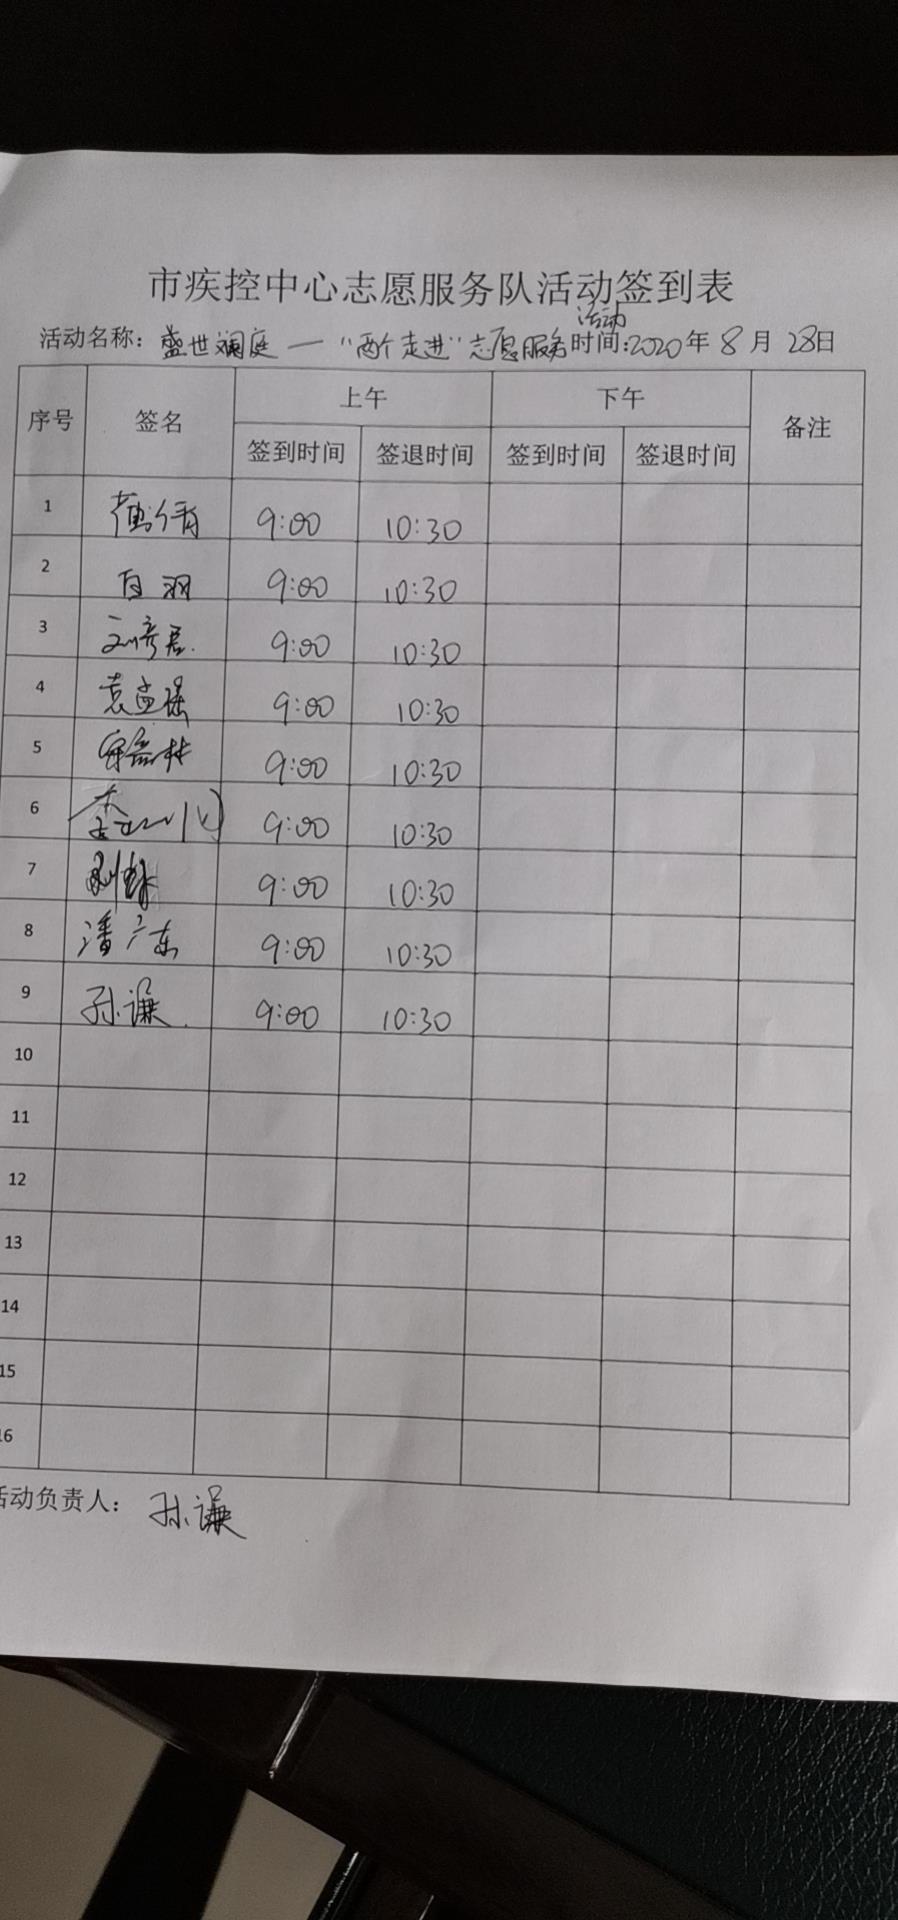 市疾控中心志愿服务队活动签到表
活动名称: 盛世澜庭 — "两个走进"志愿服务活动 时间:2020年8月28日
序号 签名 上午 下午 备注
签到时间 签退时间 签到时间 签退时间
1 9:00 10:30
2 白羽 9:00 10:30
3 9:00 10:30
4 袁孟瑶 9:00 10:30
5 9:00 10:30
6 9:00 10:30
7 9:00 10:30
8 潘广东 9:00 10:30
9 孙谦 9:00 10:30
10
11
12
13
14
15
16
活动负责人: 孙谦